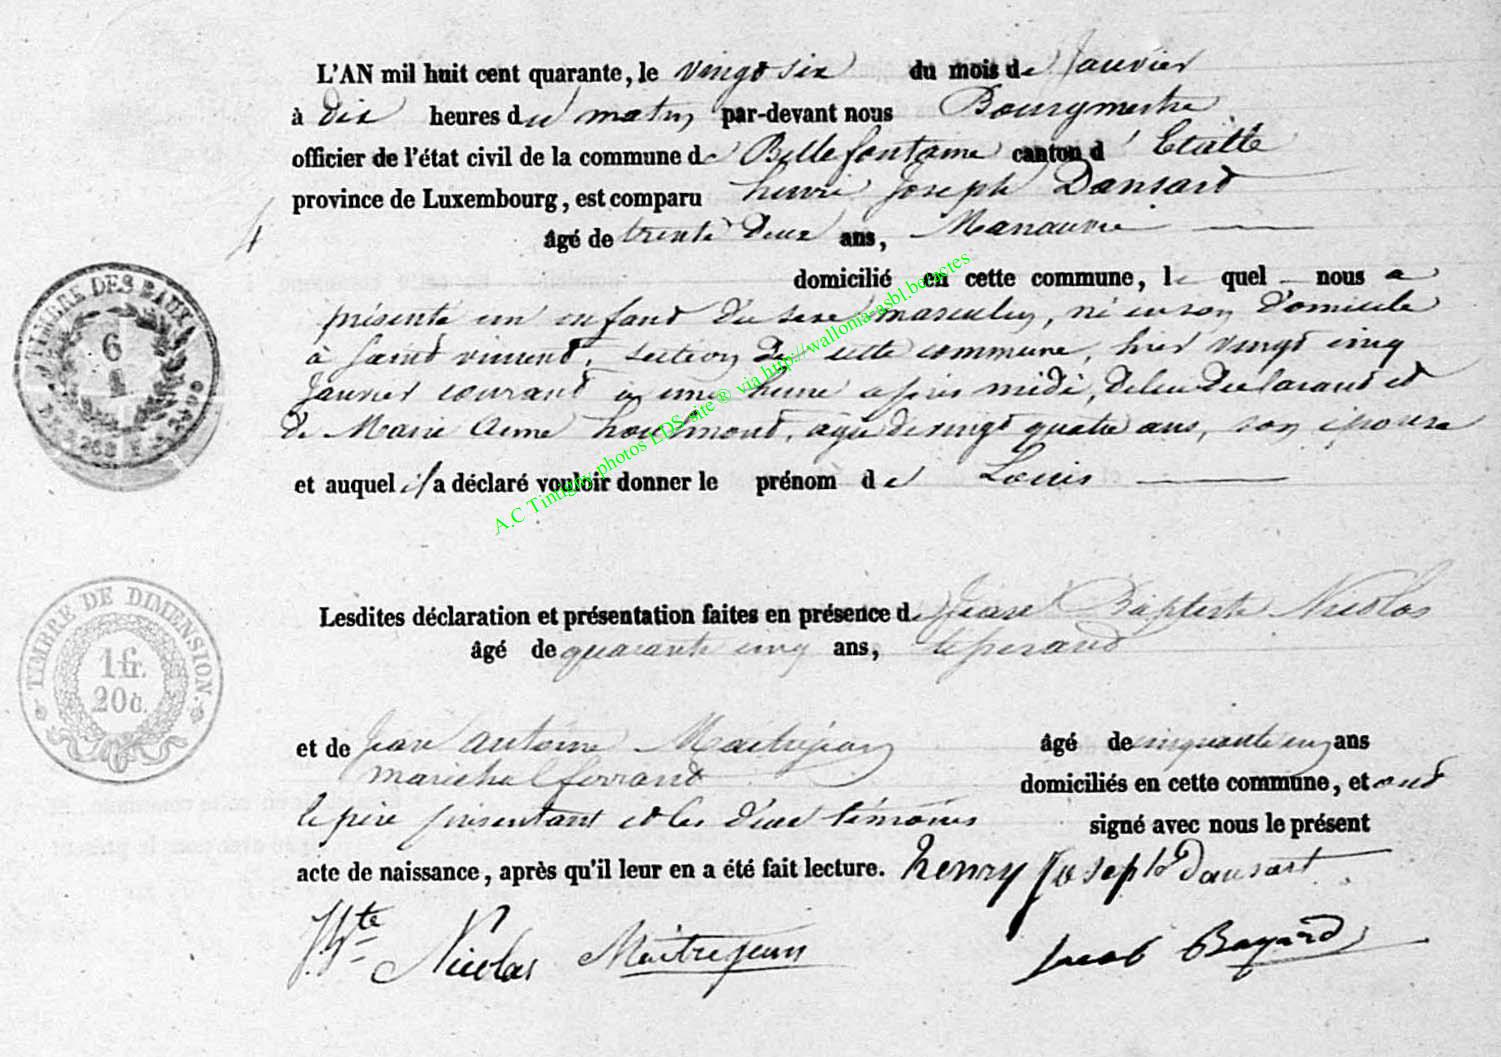 L'AN mil huit cent quarante, le vingt six du mois de Janvier
à dix heures du matin par-devant nous Bourgmestre
officier de l'état civil de la commune de Bellefontaine canton d'Etalle
province de Luxembourg, est comparu henri Joseph Dansard
4
âgé de trente deux ans, Manœuvre
domicilié en cette commune, le quel nous a
présenté un enfant du sexe masculin, né en son domicile
à saint vincent, section de cette commune, hier vingt cinq
Janvier courant à une heure après midi, de lui declarant et
de Marie Anne agée de vingt quatre ans, son épouse
et auquel il a déclaré vouloir donner le prénom de Louis
Lesdites déclaration et présentation faites en présence de Jean Baptiste Nicolas
âgé de quarante cinq ans,
et de Jean antoine Maitrejean âgé de ans
marechal ferrand domiciliés en cette commune, et ont
le père présentant et les deux témoins signé avec nous le présent
acte de naissance, après qu'il leur en a été fait lecture. henry Joseph Dansart
Nicolas Maitrejean Jacob Bayard
TIMBRE DES
6
1
TIMBRE DE DIMENSION.
1 fr.
20 c.
A.C Tintigny photos EDS-site ® via http://wallonia-asbl.be/actes